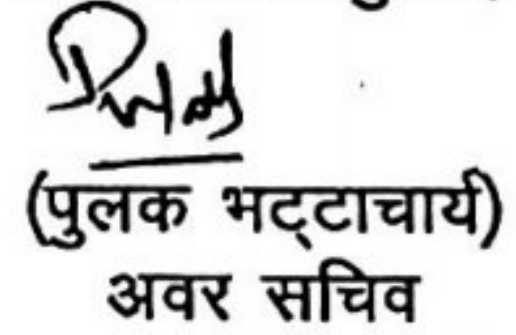 (पुलक भट्टाचार्य)
अवर सचिव